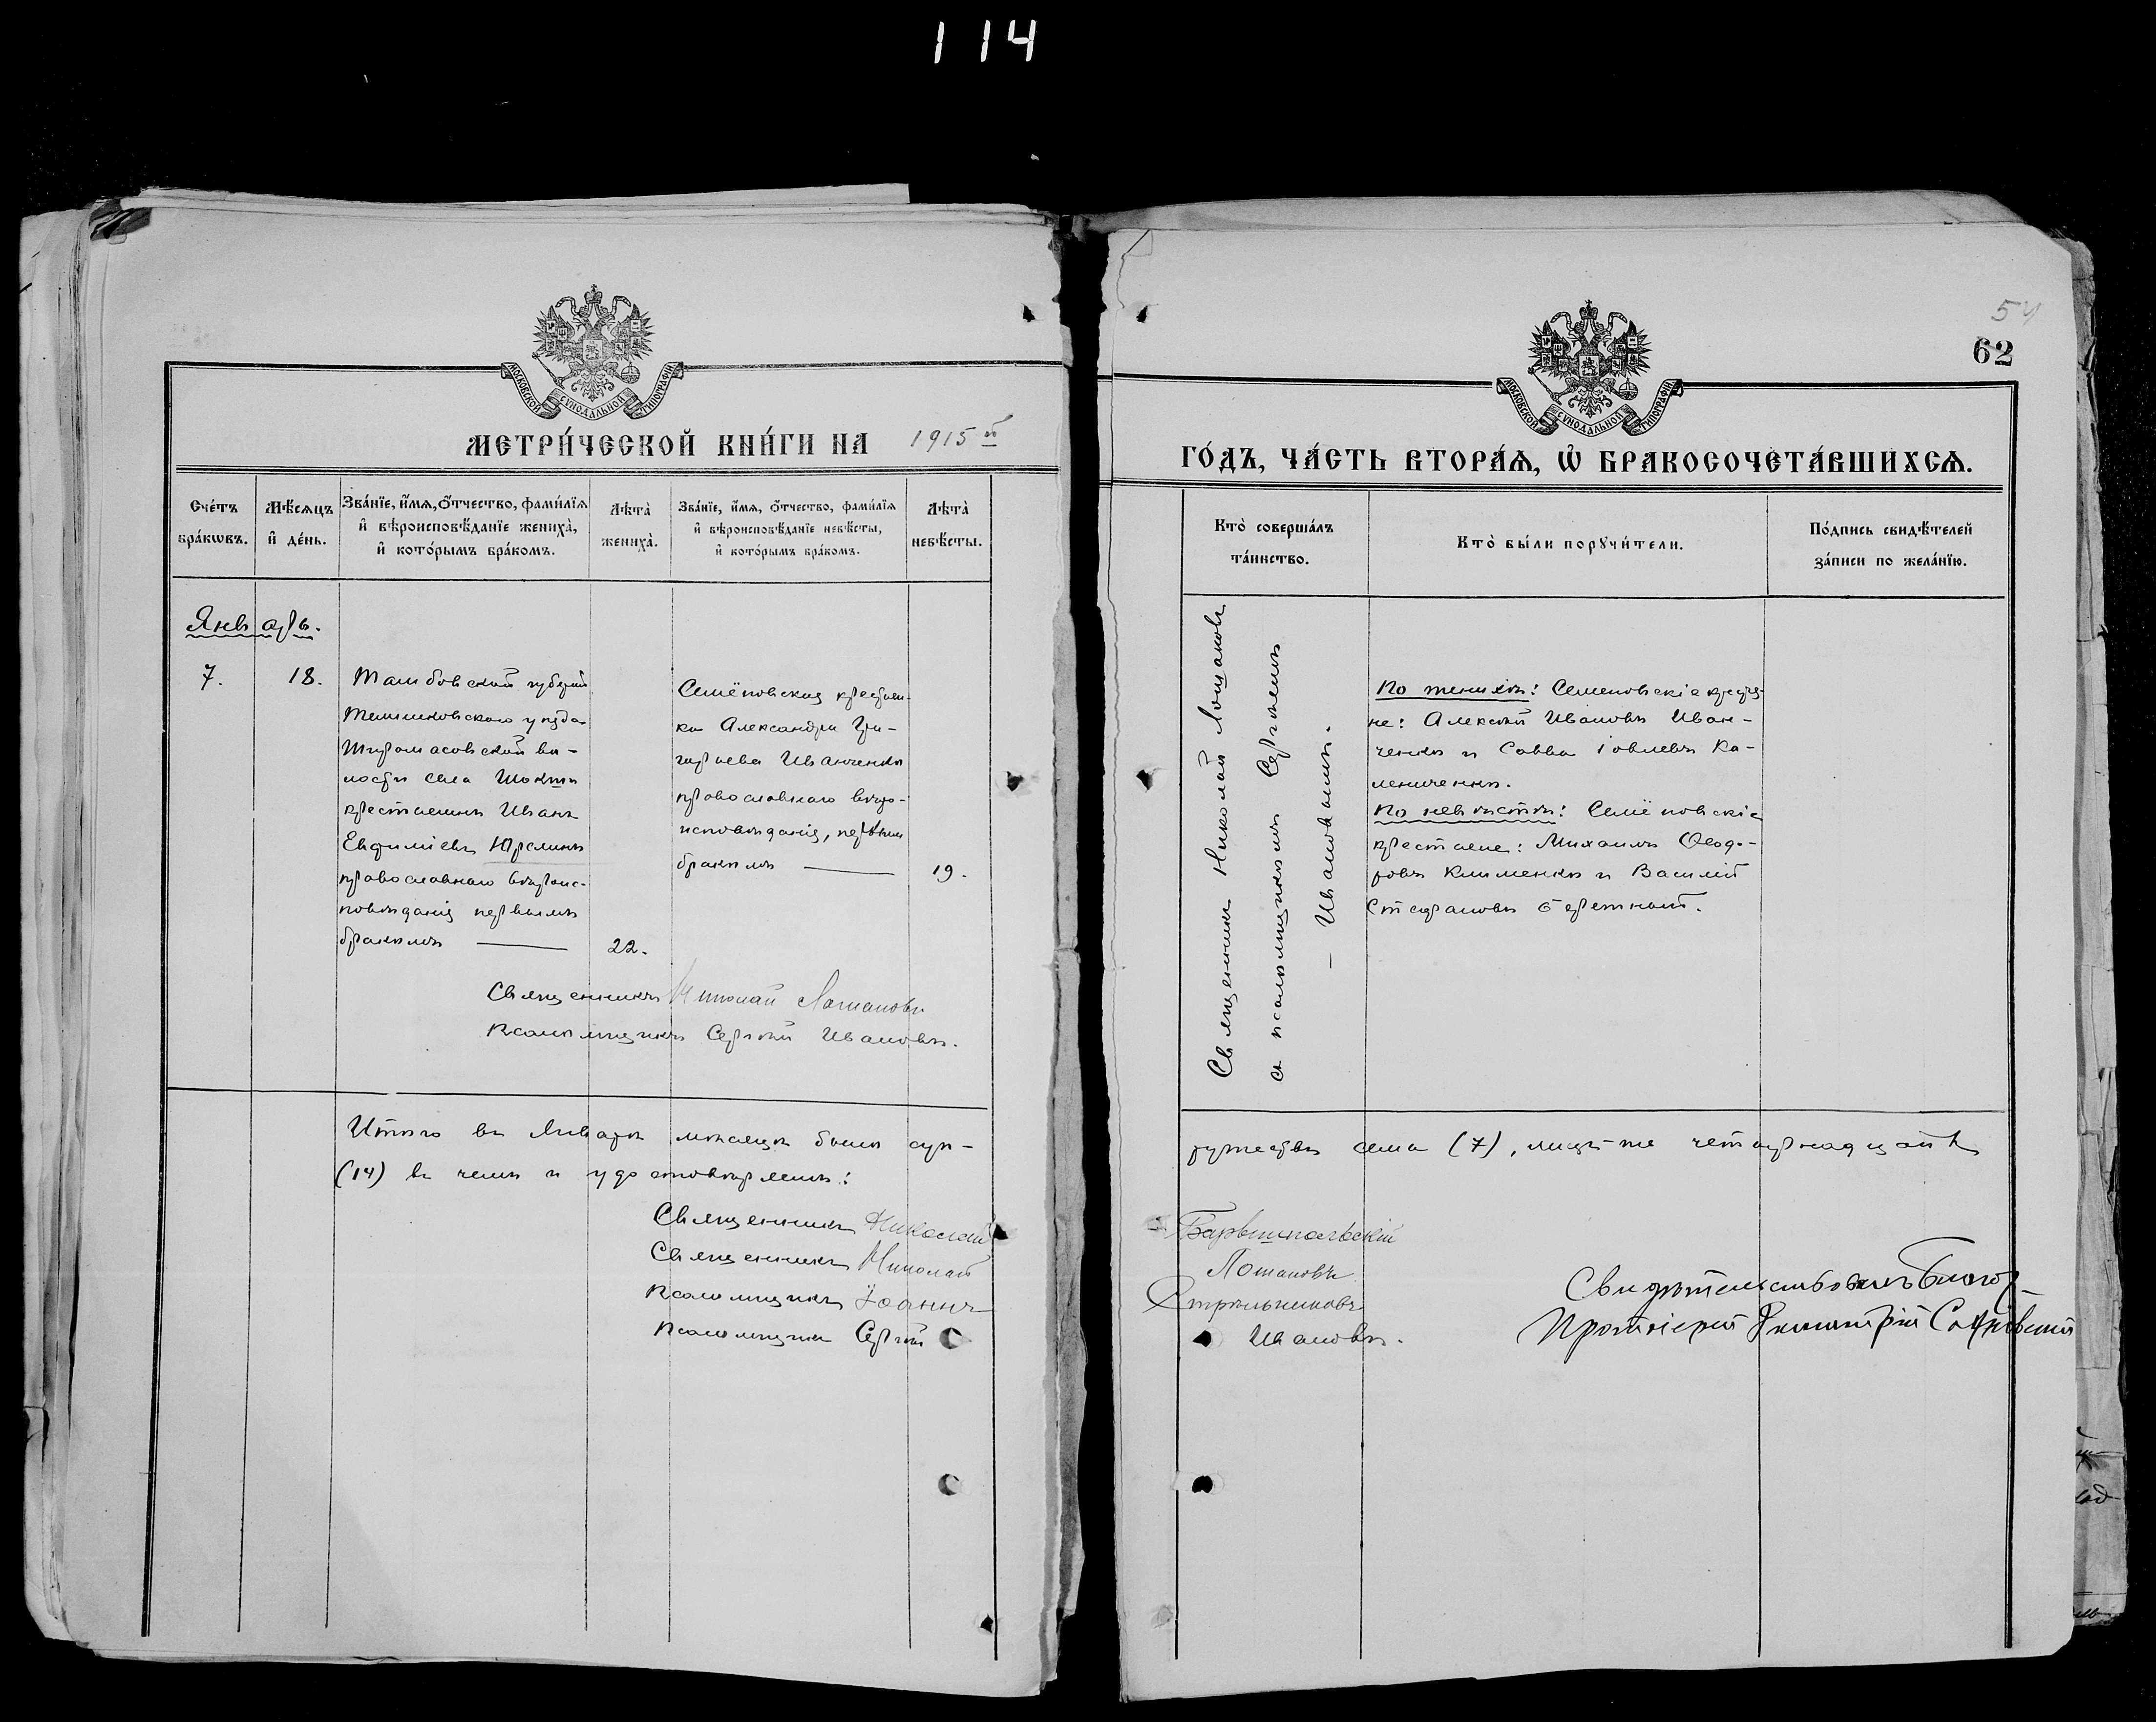 114
54
62
МОСКОВСКОЙ СѴНОДАЛЬНОЙ ТИПОГРАФІИ
МЕТРИ́ЧЕСКОЙ КНИ́ГИ НА 1915 й
Сче́тъ бра́кѡвъ.
Мѣ́сяцъ и҆ де́нь.
Зва́нїе, и҆́мѧ, ѻ҆́тчество, фами́лїѧ
и҆ вѣроисповѣ́данїе жениха̀,
и҆ кото́рымъ бра́комъ.
Лѣта̀ жениха̀.
Зва́нїе, и҆́мѧ, ѻ҆́тчество, фами́лїѧ
и҆ вѣроисповѣ́данїе невѣ́сты,
и҆ кото́рымъ бра́комъ.
Лѣта̀ невѣ́сты.
Январь.
7.
18.
Тамбовской губерніи
Темниковскаго уѣзда
Стрѣльниковъ
волости села Шокши
крестьянинъ Иванъ
Евфиміевъ Юрслинъ
православнаго вѣроис-
повѣданія первымъ
бракомъ
22.
Семёновская крестьян-
ка Александра Гри-
горьева Иванченко
православнаго вѣро-
исповѣданія, первымъ
бракомъ
19.
Священникъ Николай Лошаковъ
Псаломщикъ Сергѣй Ивановъ.
Итого въ Январѣ мѣсяцѣ было суп-
(14) въ чемъ и удостовѣряемъ:
Священникъ Николай
Священникъ Николай
Псаломщикъ Іоаннъ
Псаломщикъ Сергѣй
МОСКОВСКОЙ СѴНОДАЛЬНОЙ ТИПОГРАФІИ
ГО́ДЪ, ЧА́СТЬ ВТОРА́Ѧ, Ѡ҆ БРАКОСОЧЕТА́ВШИХСѦ.
Кто̀ соверша́лъ
та́инство.
Кто̀ бы́ли порꙋчи́тели.
По́дпись свидѣ́телей
за́писи по жела́нїю.
Священникъ Николай Лошаковъ
съ псаломщикомъ Сергѣемъ
— Ивановымъ.
По женихѣ: Семеновскіе крестья-
не: Алексѣй Ивановъ Иван-
ченко и Савва Іовлевъ Ка-
лениченко.
По невѣстѣ: Семёновскіе
крестьяне: Михаилъ Ѳеодо-
ровъ Клименко и Василій
Стефановъ Бережный.
ружествъ семь (7), лицъ-же четырнадцать
Барвинпольскій
Лошаковъ
Стрѣльниковъ
Ивановъ.
Свидѣтельствовалъ Благоч.
Протоіерей Димитрій